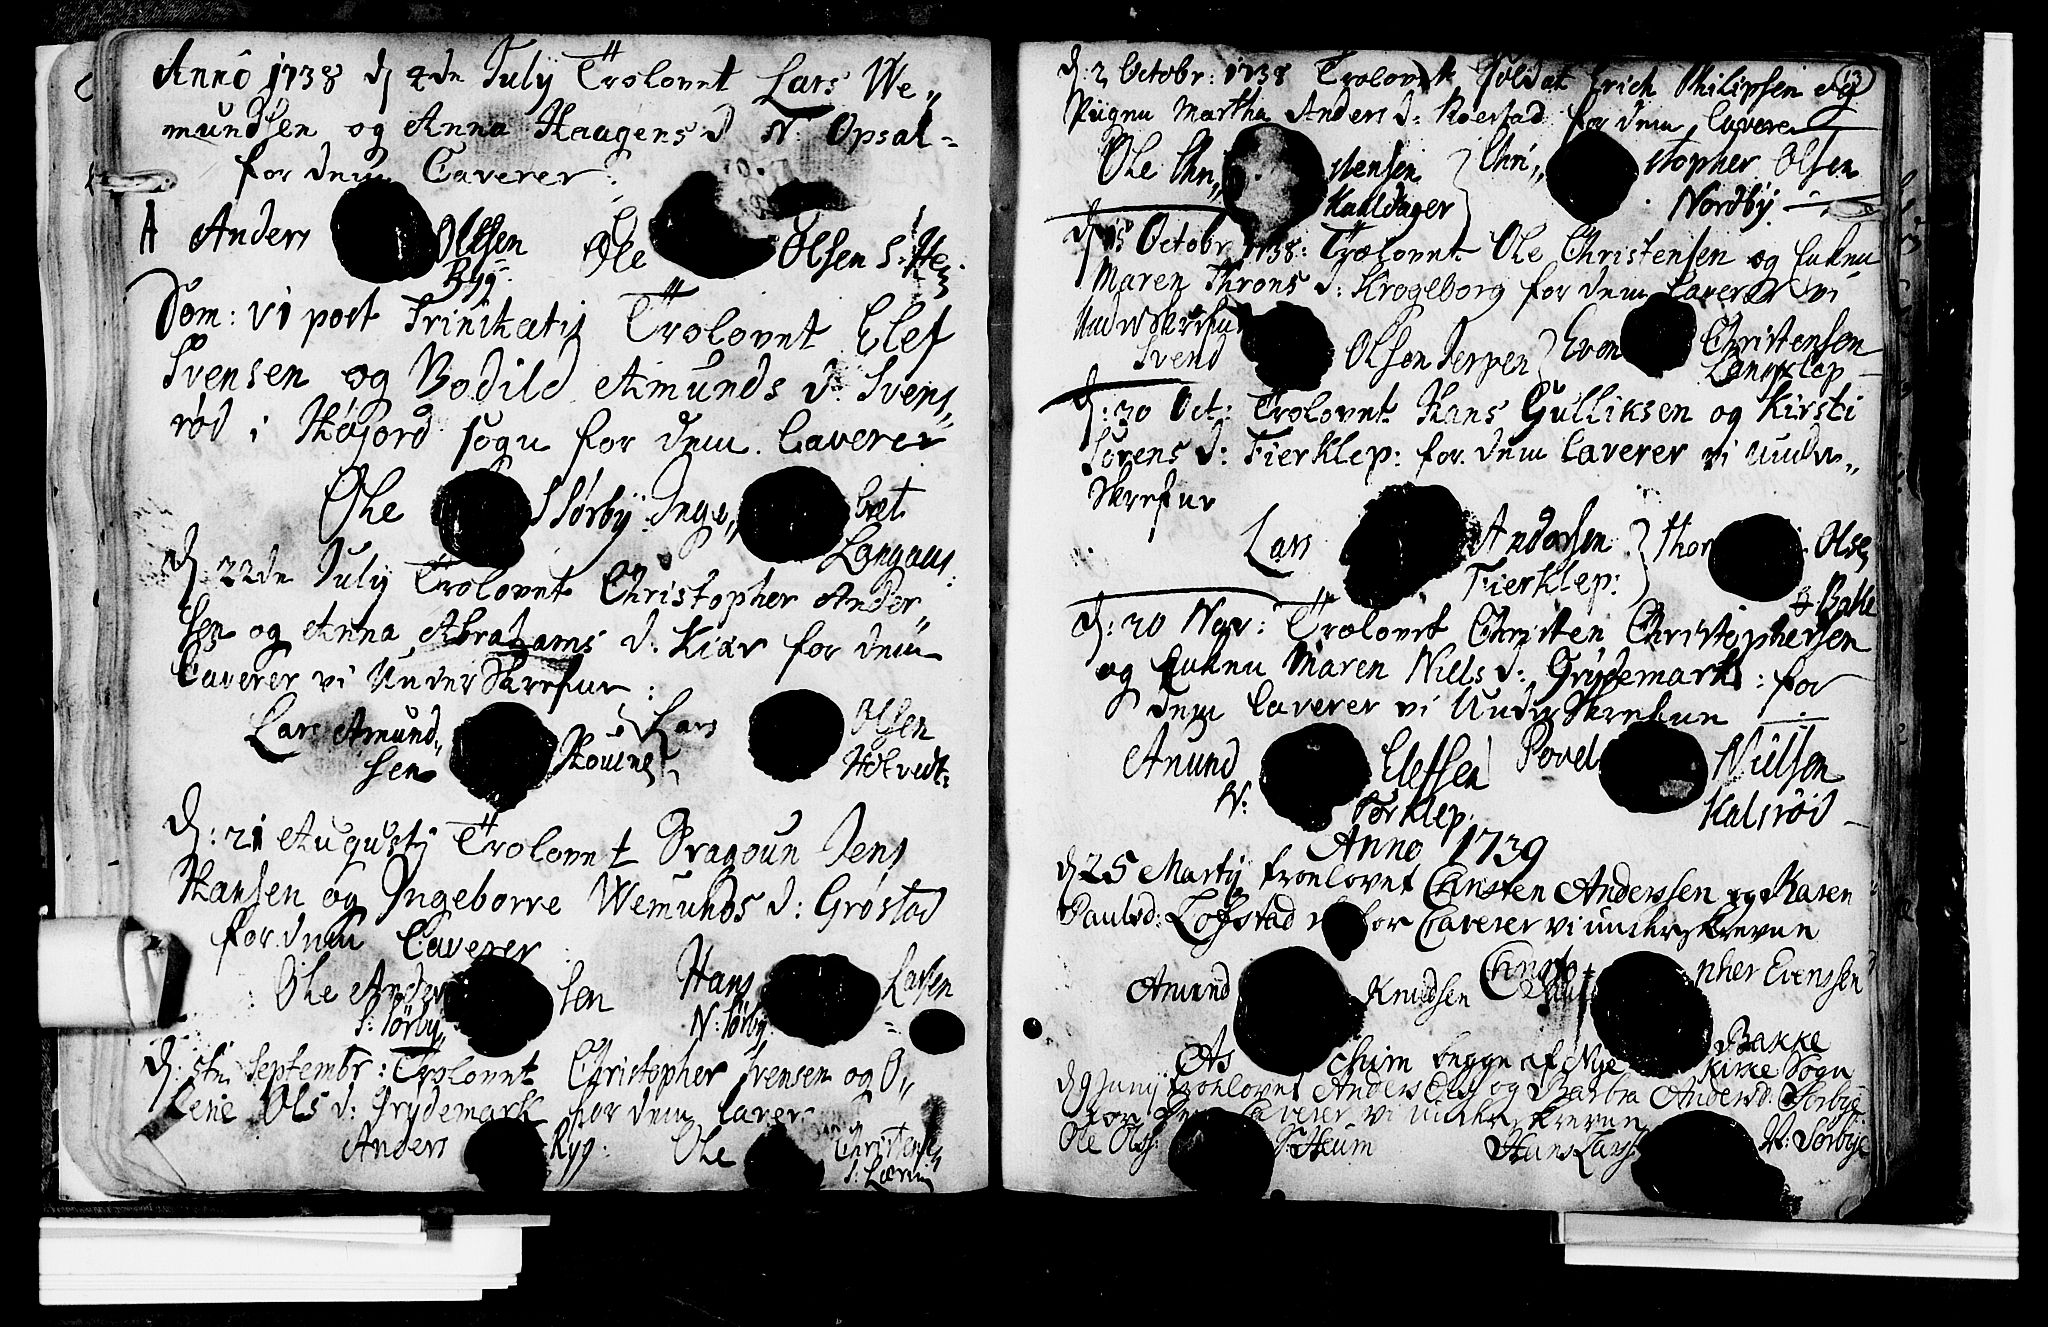 Anno 1738 d 4de July Trolovet Lars We„
mundsen og Anna Haagens d N: Opsal=
for dem Caverer:
A Anders Ollsen Ole Olsen S: He
Ryg
Dom: VI post Trinitatis Trolovet Elef
Svensen og Bodild Amunds d: Svens„
rød i Høijord sogn for dem Caverer
Ole S Sørby Inge„ bret
Langaas:
d 22de July Trolovet Christopher Ander„
sen og Anna Abrahams d: Kiær for dem
Caverer vi UnderSkrefne:
Lars Amund„ Lars Olsen
sen Holvedt:
d: 21 Augusty Trolovet Dragoun Jens
Hansen og Ingeborre Wemunds d: Grøstad
for dem Caverer
Ole Ander sen Hans Larsen
S: Sørby N: Sørby
d: 5te Septembr: Trolovet Christopher Svensen og O„
lene Ols d: Grydemark for dem Caver
Anders Ryg: Ole Christensen
13
d: 2 Octobr: 1738 Trolovet Soldat Erich Philipsen og
Pigen Martha Anders d: Roestad for dem Caverer
Ole Chri„ stensen Chri„ stopher Olsen
Kaaldager Nordby
d 15 Octobr 1738: Trolovet Ole Christensen og Enken
Maren Throns d: Krogeborg for dem Caverer vi
UnderSkrefne
Svend Olsen Jerpen Even Christensen
Langklep
d: 20 Oct: Trolovet Hans Gulliksen og Kirsti
Sørens d: Fierklep: for dem Caverer vi under„
Skrefne
Lars Andersen Thor Olsen
Fierklep: Bakke
d: 20 Nov: Trolovet Christen Christophersen
og Enken Maren Niels d: Grydemark: for
dem Caverer vi UnderSkrefne
Anund Elefsen Povel Nielsen
N: Torklep. Kalsrød
Anno 1739
d 25 Martij troelovet Christen Anderssen og Karen
Paulsd: Lofstad for Caverer vi underskrevne
Amund Knudsen Christo= pher Evenssen
As Bakke
begge af Nøe Kirke Sogn
d 9 Junij troelovet Anders Elefs og Barbra Andersd: Sørbye
for dem Caverer vi underskrevne
Ole Ols: S: Heum Hans Larss N: Sørbye